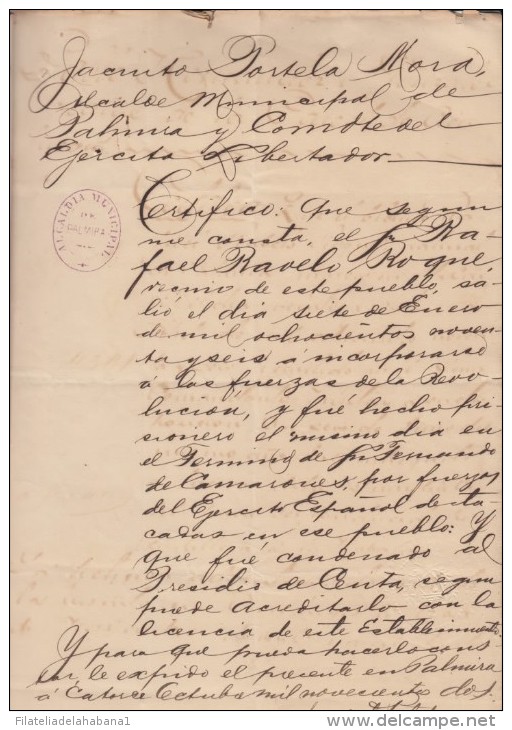 Jacinto Portela Mora,
Alcalde Municipal de
Palmira y Comdte del
Ejercito Libertador.
ALCALDIA MUNICIPAL
DE
PALMIRA
Certifico: Que segun
me consta, el Sr Ra-
fael Ravelo Roque,
vecino de este pueblo, sa-
lió el dia siete de Enero
de mil ochocientos noven-
ta y seis á incorporarse
á las fuerzas de la Revo-
lucion, y fué hecho pri-
sionero el mismo dia en
el Termino de Sn Fernando
de Camarones, por fuerzas
del Ejercito Español desta-
cadas en ese pueblo: Y
que fué condenado al
Presidio de Ceuta, segun
puede acreditarlo con la
licencia de este Establecimiento
Y para que pueda hacerlo cons-
tar, le expido el presente en Palmira
á Catorce Octubre mil novecientos dos.
Filateliadelahabana1
www.delcampe.net